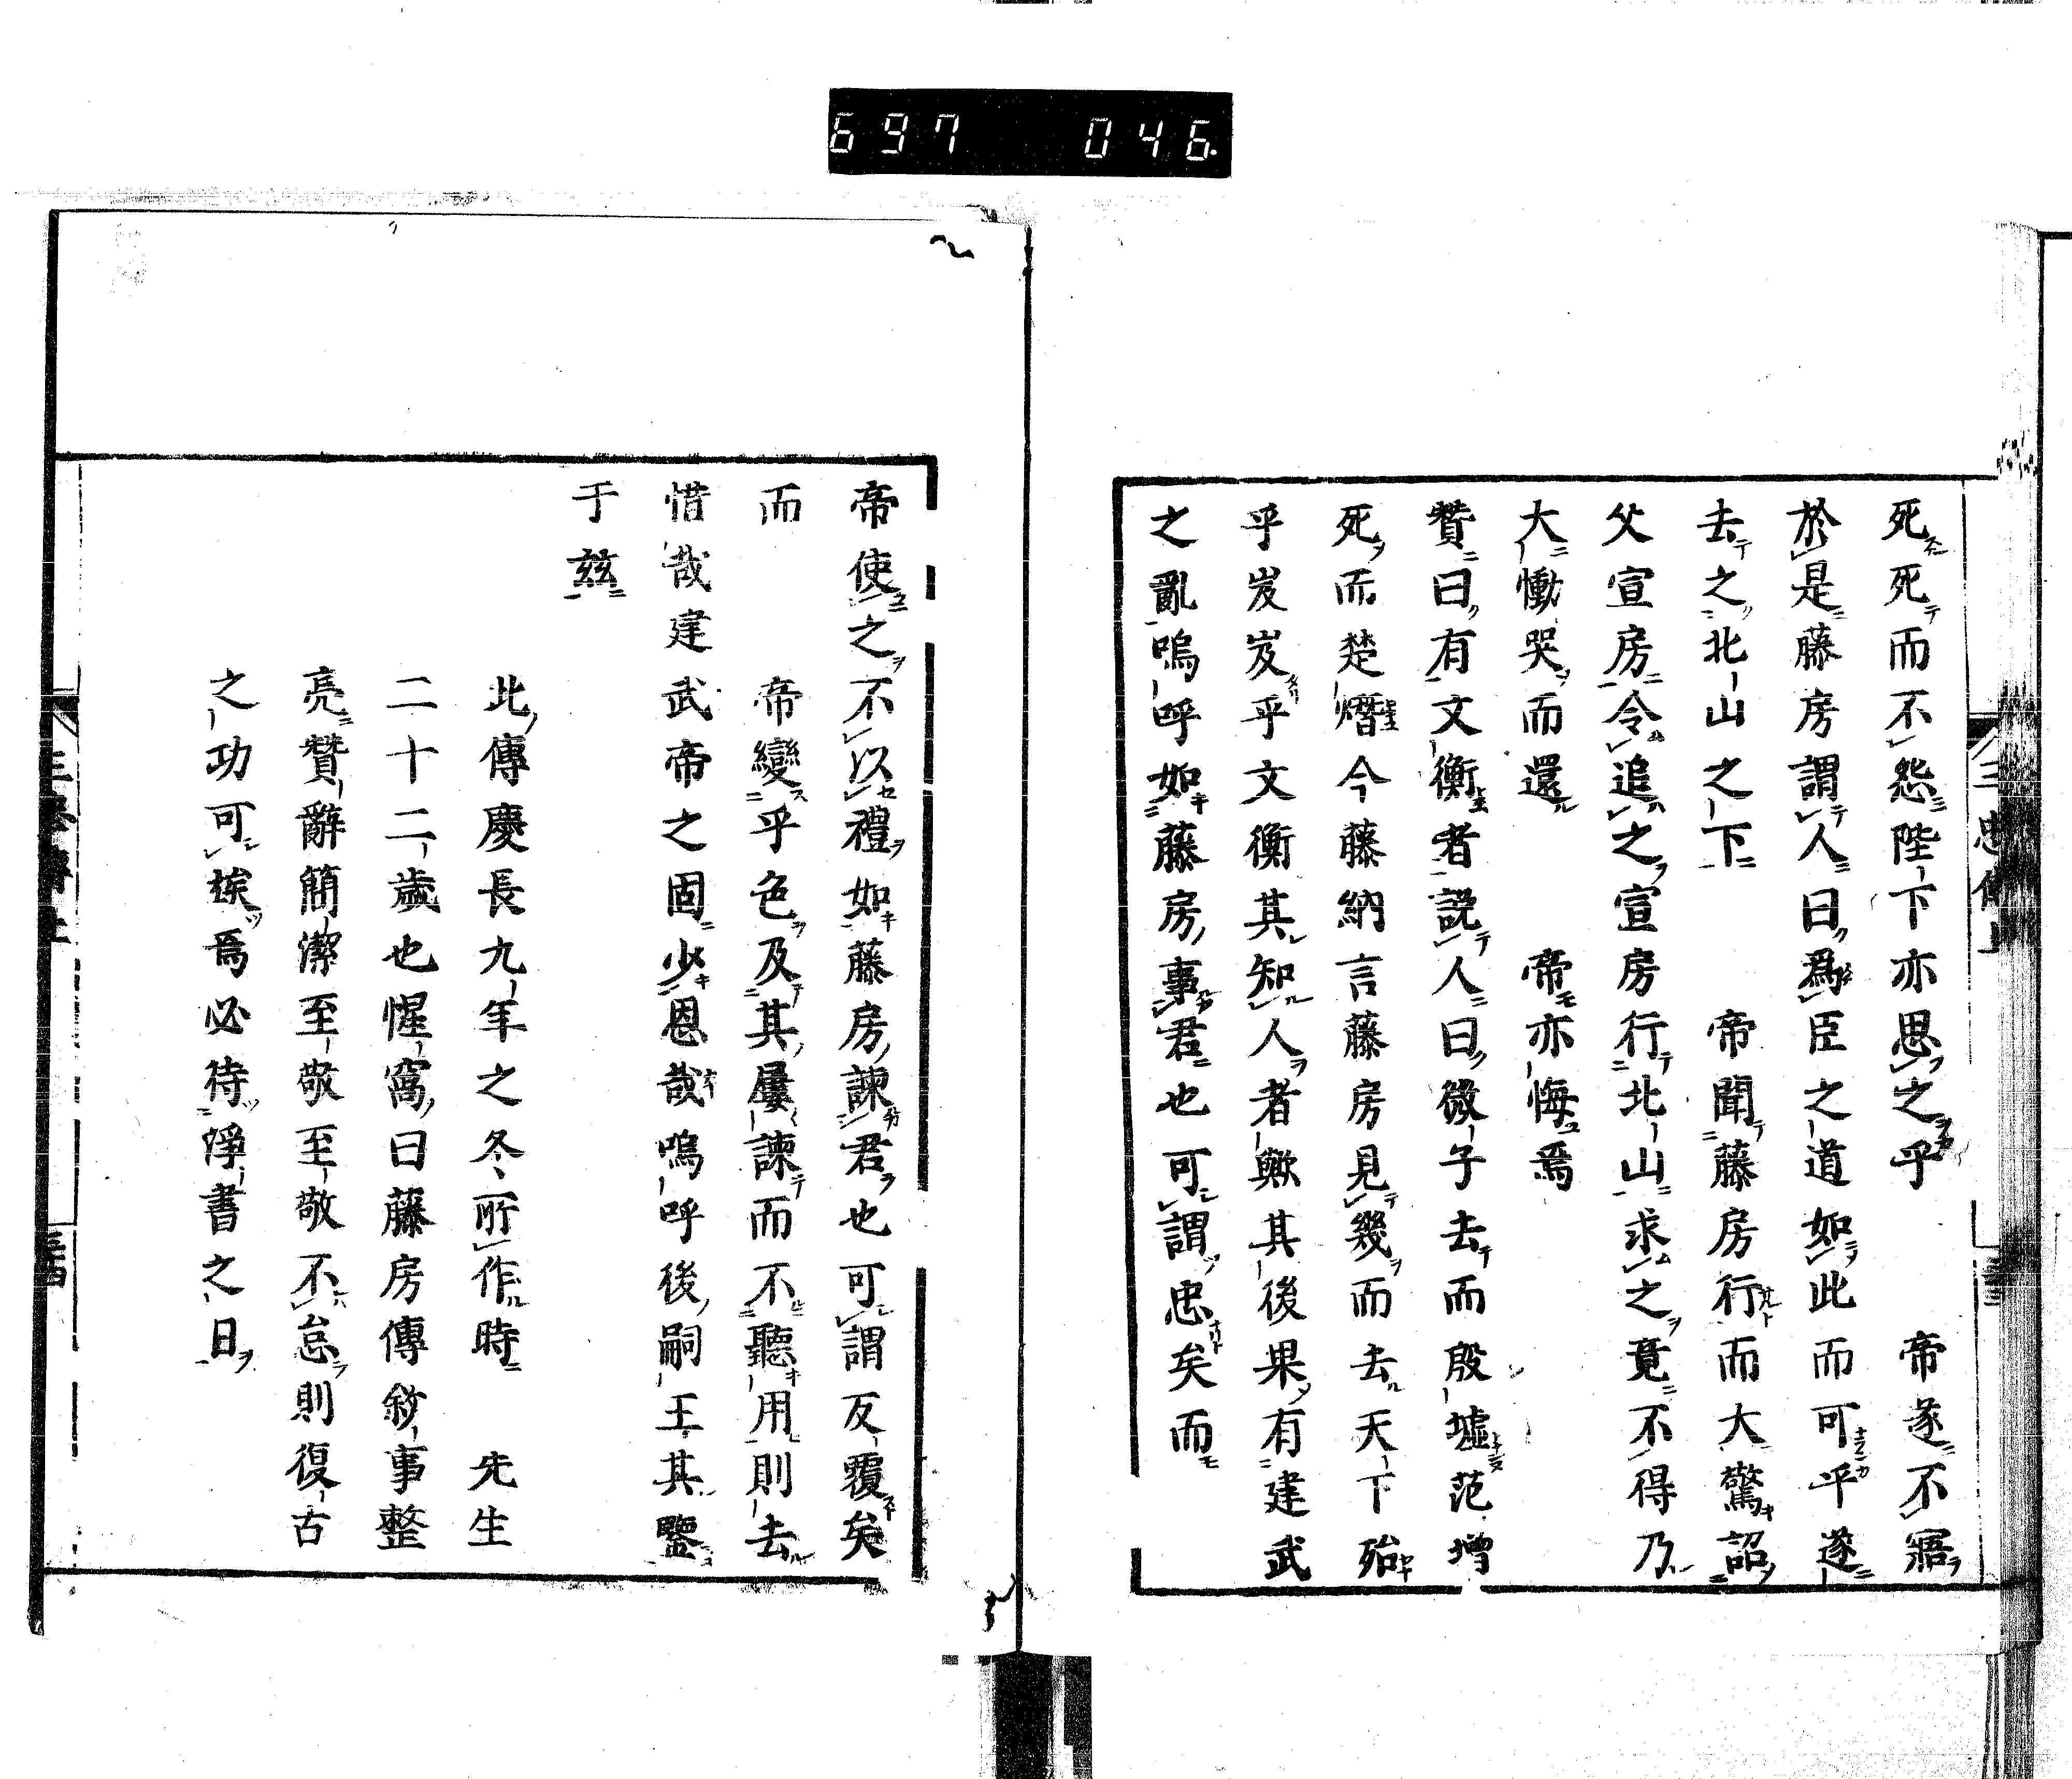 697 046
死死而不怨陛下亦思之乎　帝遂不寤
於是藤房謂人曰爲臣之道如此而可乎遂
去之北山之下　帝聞藤房行而大驚詔
父宣房令追之宣房行北山求之竟不得乃
大慟哭而還　帝亦悔焉
贊曰有文衡者説人曰微子去而殷墟范增
死而楚熸今藤納言藤房見幾而去天下殆
乎岌岌乎文衡其知人者歟其後果有建武
之亂嗚呼如藤房事君也可謂忠矣而
帝使之不以禮如藤房諫君也可謂反覆矣
而　帝變乎色及其屢諫而不聽用則去
惜哉建武帝之固少恩哉嗚呼後嗣王其鑒
于茲
北傳慶長九年之冬所作時　先生
二十二歲也惺窩曰藤房傳敘事整
亮贊辭簡潔至敬至敬不怠則復古
之功可埃焉必待淨書之日